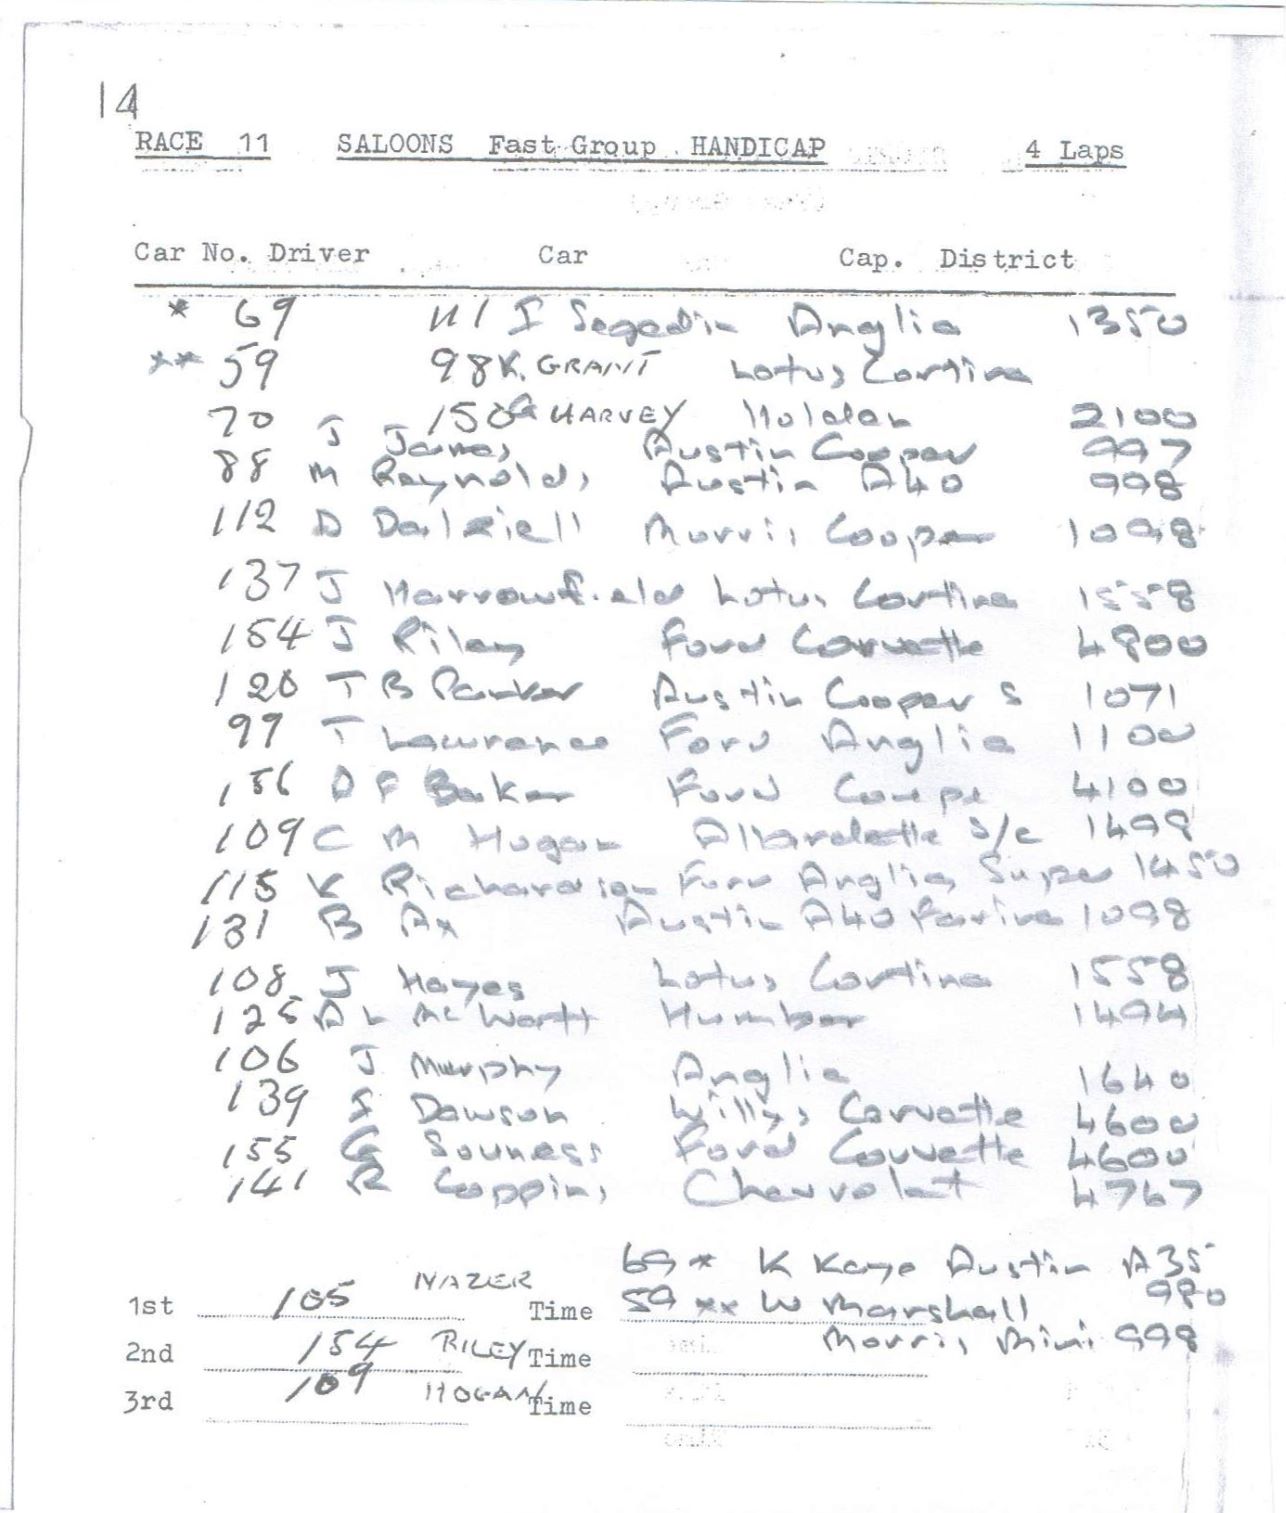 14
RACE 11 SALOONS Fast Group HANDICAP 4 Laps
Car No. Driver Car Cap. District
* 69 111 I Segedin Anglia 1350
** 59 98 K. GRANT Lotus Cortina
70 150 G HARVEY Holden 2100
J James Austin Cooper 997
88 M Reynolds Austin A40 998
112 D Dalziell Morris Cooper 1098
137 J Harrowfield Lotus Cortina 1558
154 J Riley Ford Corvette 4800
120 T B Parker Austin Cooper S 1071
99 T Lawrence Ford Anglia 1100
156 D F Baker Ford Coupe 4100
109 C M Hogan Allardette S/c 1499
115 K Richardson Ford Anglia Super 1450
131 B Ax Austin A40 Farina 1098
108 J Hayes Lotus Cortina 1558
125 A L McWortt Humber 1494
106 J Murphy Anglia 1640
139 S Dawson Willys Corvette 4600
155 G Souness Ford Corvette 4600
141 R Coppins Chevrolet 4767
69 * K Kaye Austin A35 980
1st 105 NAZER Time 59 ** W Marshall
Morris Mini 998
2nd 154 RILEY Time
3rd 109 HOGAN Time